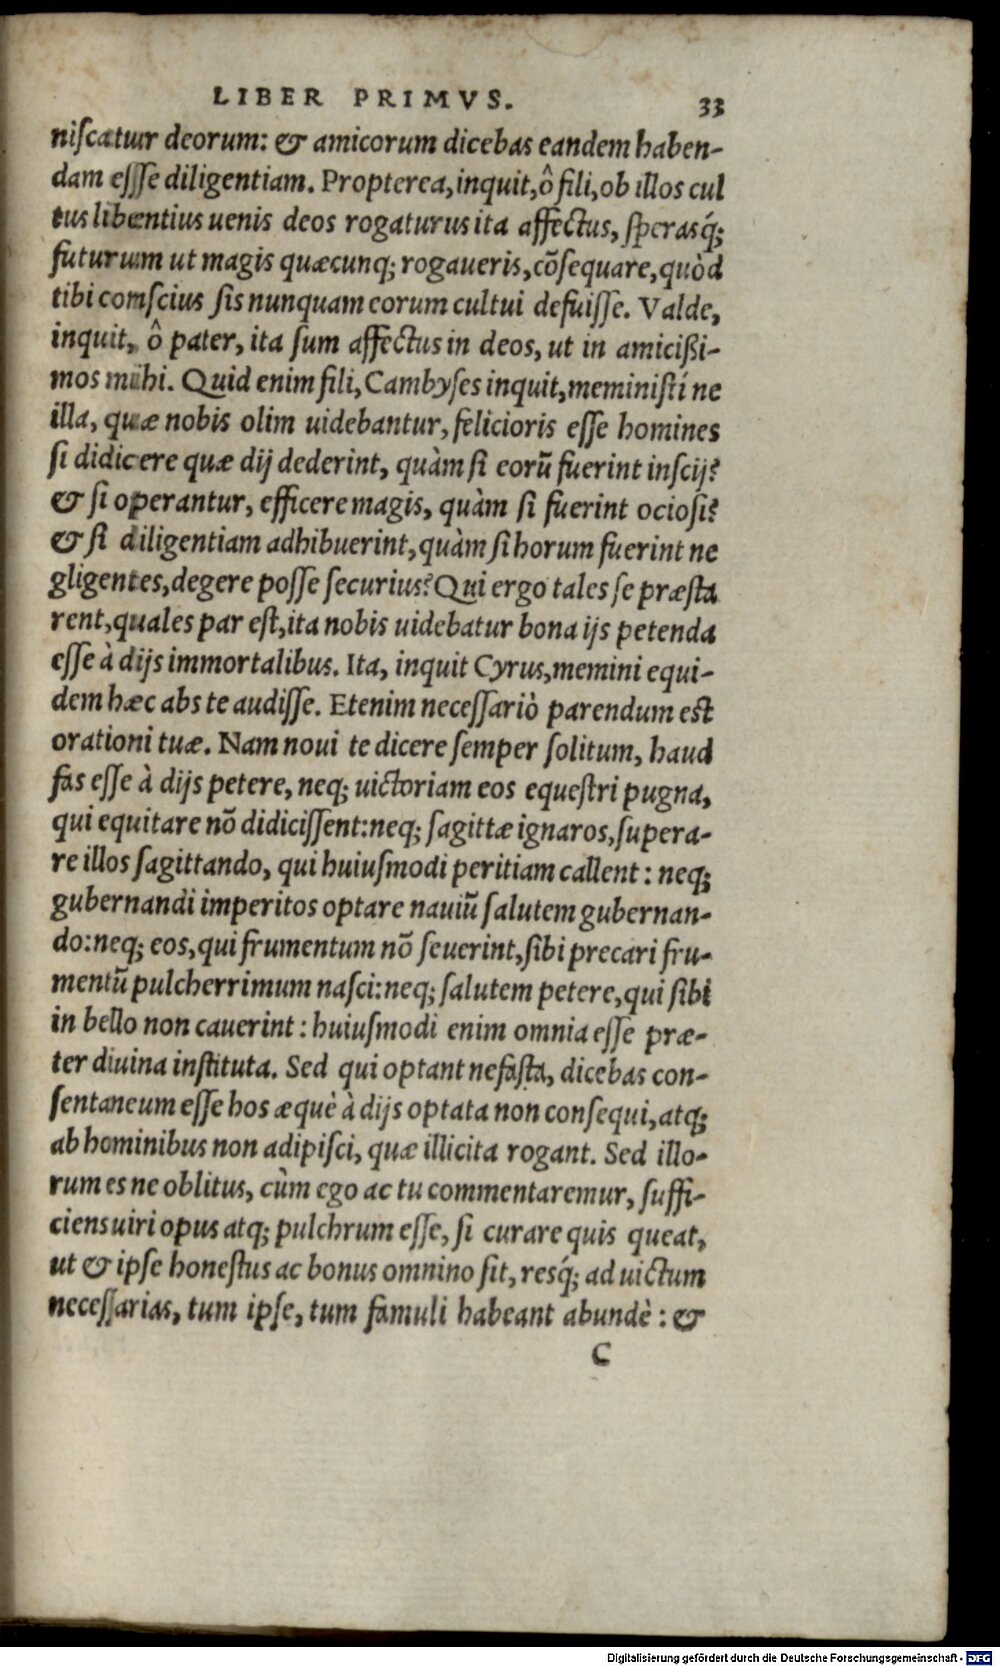 LIBER PRIMVS. 33
niſcatur deorum: & amicorum dicebas eandem haben-
dam eſſe diligentiam. Propterea, inquit, ô fili, ob illos cul
tus libentius uenis deos rogaturus ita affectus, ſperasq́;
futurum ut magis quæcunq; rogaueris, cõſequare, quòd
tibi conſcius ſis nunquam eorum cultui defuiſſe. Valde,
inquit, ô pater, ita ſum affectus in deos, ut in amicißi-
mos mihi. Quid enim fili, Cambyſes inquit, meminiſti ne
illa, quæ nobis olim uidebantur, felicioris eſſe homines
ſi didicere quæ dij dederint, quàm ſi eorũ fuerint inſcij?
& ſi operantur, efficere magis, quàm ſi fuerint ocioſi?
& ſi diligentiam adhibuerint, quàm ſi horum fuerint ne
gligentes, degere poſſe ſecurius? Qui ergo tales ſe præſta
rent, quales par eſt, ita nobis uidebatur bona ijs petenda
eſſe à dijs immortalibus. Ita, inquit Cyrus, memini equi-
dem hæc abs te audiſſe. Etenim neceſſariò parendum est
orationi tuæ. Nam noui te dicere ſemper ſolitum, haud
fas eſſe à dijs petere, neq; uictoriam eos equeſtri pugna,
qui equitare nõ didiciſſent: neq; ſagittæ ignaros, ſupera-
re illos ſagittando, qui huiuſmodi peritiam callent: neq;
gubernandi imperitos optare nauiũ ſalutem gubernan-
do: neq; eos, qui frumentum nõ ſeuerint, ſibi precari fru-
mentũ pulcherrimum naſci: neq; ſalutem petere, qui ſibi
in bello non cauerint: huiuſmodi enim omnia eſſe præ-
ter diuina inſtituta. Sed qui optant nefaſta, dicebas con-
ſentaneum eſſe hos æquè à dijs optata non conſequi, atq;
ab hominibus non adipiſci, quæ illicita rogant. Sed illo-
rum es ne oblitus, cùm ego ac tu commentaremur, ſuffi-
ciens uiri opus atq; pulchrum eſſe, ſi curare quis queat,
ut & ipſe honeſtus ac bonus omnino ſit, resq́; ad uictum
neceſſarias, tum ipſe, tum famuli habeant abundè: &
C
Digitalisierung gefördert durch die Deutsche Forschungsgemeinschaft - DFG